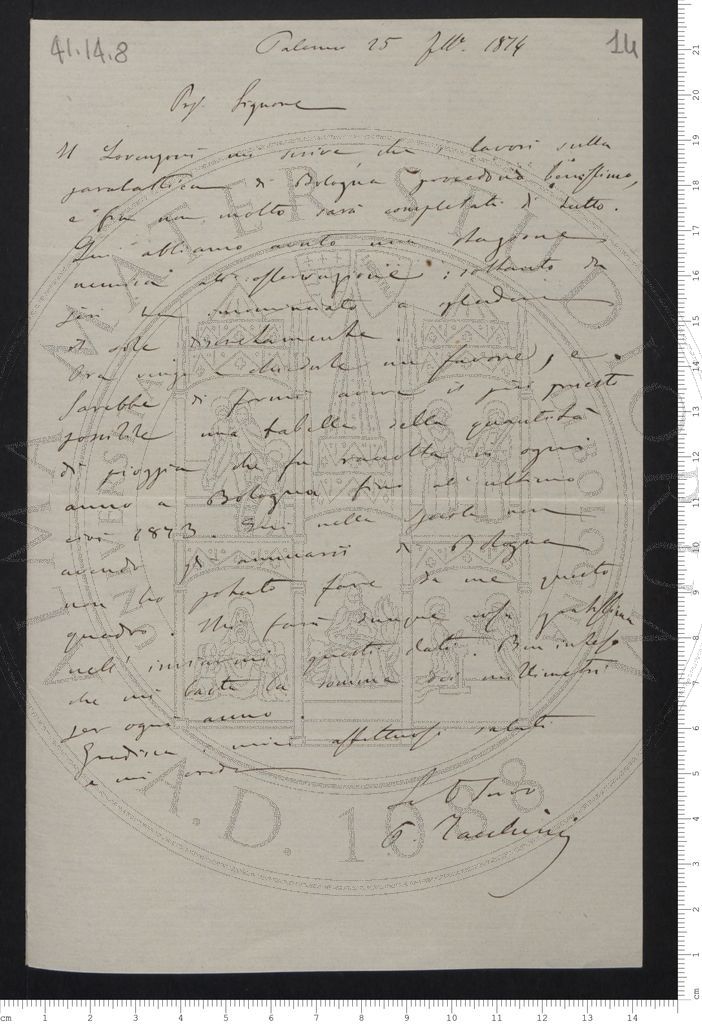 41.14.8
14
Palermo 25 1874
Signore
Il Lorenzoni mi scrive che i lavori sulla
parallattica di Bologna procedono benissimo,
e fra non molto sarà completata di tutto.
Qui abbiamo avuto una stagione
nemica alle osservazioni; soltanto da
jeri ha cominciato a splendere
il sole discretamente.
Ora vengo a chiederle un favore, e
sarebbe di farmi avere il più presto
possibile una tabella della quantità
di pioggia che fu raccolta in ogni
anno a Bologna fino all'ultimo
cioè 1873. Qui nella Specola non
avendo gli annuarii di Bologna
non ho potuto fare da me questo
quadro. Mi farà dunque cosa gratissima
nell'inviarmi questi dati. Ben inteso
che mi basta la somma dei millimetri
per ogni anno.
Gradisca i miei affettuosi saluti
e mi creda
P. Tacchini
ALMA MATER STUDIORUM
A.D. 1088
cm 1 2 3 4 5 6 7 8 9 10 11 12 13 14
cm 1 2 3 4 5 6 7 8 9 10 11 12 13 14 15 16 17 18 19 20 21